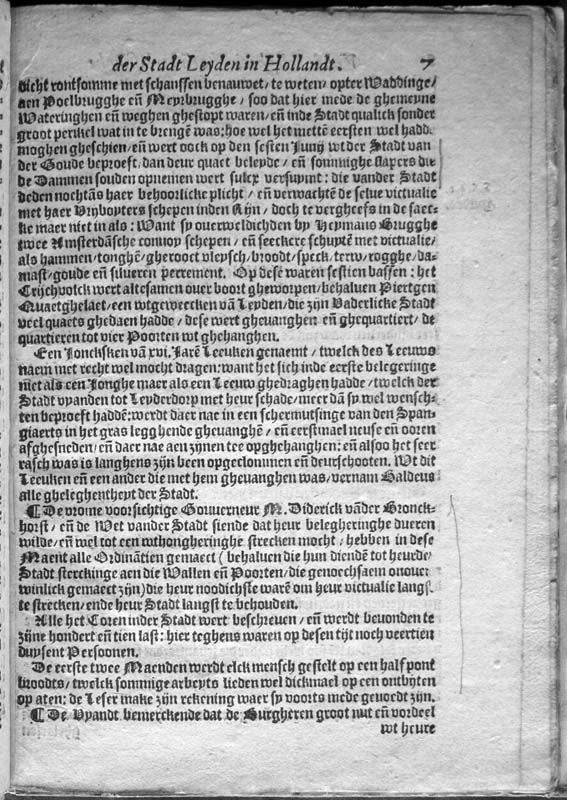 der Stadt Leyden in Hollandt. 7
dicht rontsomme met schanssen benauwet / te weten / opter Waddinge /
aen Poelbrugghe eñ Meyrbrugghe / soo dat hier mede de ghemeyne
Wateringhen eñ weghen ghestopt waren / eñ inde Stadt qualick sonder
groot perikel wat in te brengē was: hoe wel het mettē eersten wel hadde
moghen gheschien / eñ wert oock op den sesten Junij wt der Stadt van
der Goude beproeft / dan deur quaet beleyde / eñ sommighe slapers die
de Dammen souden opnemen wert sulcx versuymt: die vander Stadt
deden nochtās haer behoorlicke plicht / eñ verwachtē de selue victualie
met haer Vrybuyters schepen inden Rijn / doch te vergheefs in de saec-
ke maer niet in als: Want sy ouerweldichden by Heymans Brugghe
twee Amsterdāsche conuoy schepen / eñ seeckere schuytē met victualie /
als hammen / tonghē / gheroockt vleysch / broodt / speck / terw / rogghe / da-
mast / goude eñ silueren perrement. Op dese waren sestien bassen: het
Crijchvolck wert altesamen ouer boort gheworpen / behaluen Piertgen
Quaetghelaet / een wtgeweecken vā Leyden / die zijn Vaderlicke Stadt
veel quaets ghedaen hadde / dese wert ghevanghen eñ ghequartiert / de
quartieren tot vier Poorten wt ghehanghen.
Een Joncksken vā xvi. Jarē Leeuken genaemt / twelck des Leeuws
naem met recht wel mocht dragen: want het sich inde eerste belegeringe
niet als een Jonghe maer als een Leeuw ghedraghen hadde / twelck der
Stadt vyanden tot Leyderdorp met heur schade / meer dā sy wel wensch-
ten beproeft haddē: werdt daer nae in een schermutsinge van den Span-
giaerts in het gras legghende ghevanghē / eñ eerstmael neuse eñ ooren
afghesneden / eñ daer nae aen zynen tee opghehanghen: eñ alsoo het seer
rasch was is langhens zijn been opgeclommen eñ deurschooten. Wt dit
Leeuken eñ een ander die met hem ghevanghen was / vernam Baldeus
alle gheleghentheyt der Stadt.
¶ De vrome voorsichtige Gouverneur M. Diderick vāder Bronck-
horst / eñ de Wet vander Stadt siende dat heur belegheringhe dueren
wilde / eñ wel tot een wthongheringhe strecken mocht / hebben in dese
Maent alle Ordināntien gemaect ( behaluen die hun diendē tot heurder
Stadt sterckinge aen die Wallen eñ Poorten / die genoechsaem onouer
winlick gemaect zijn) die heur noodichste warē om heur victualie langst
te strecken / ende heur Stadt langst te behouden.
Alle het Coren inder Stadt wert beschreuen / eñ werdt bevonden te
zijne hondert eñ tien last: hier teghens waren op desen tijt noch veertien
duysent Persoonen.
De eerste twee Maenden werdt elck mensch gestelt op een half pont
broodts / twelck sommige arbeyts lieden wel dickmael op een ontbyten
op aten: de Leser make zijn rekening waer sy voorts mede gevoedt zijn.
¶ De Vyandt bemerckende dat de Burgheren groot nut eñ voordeel
wt heure